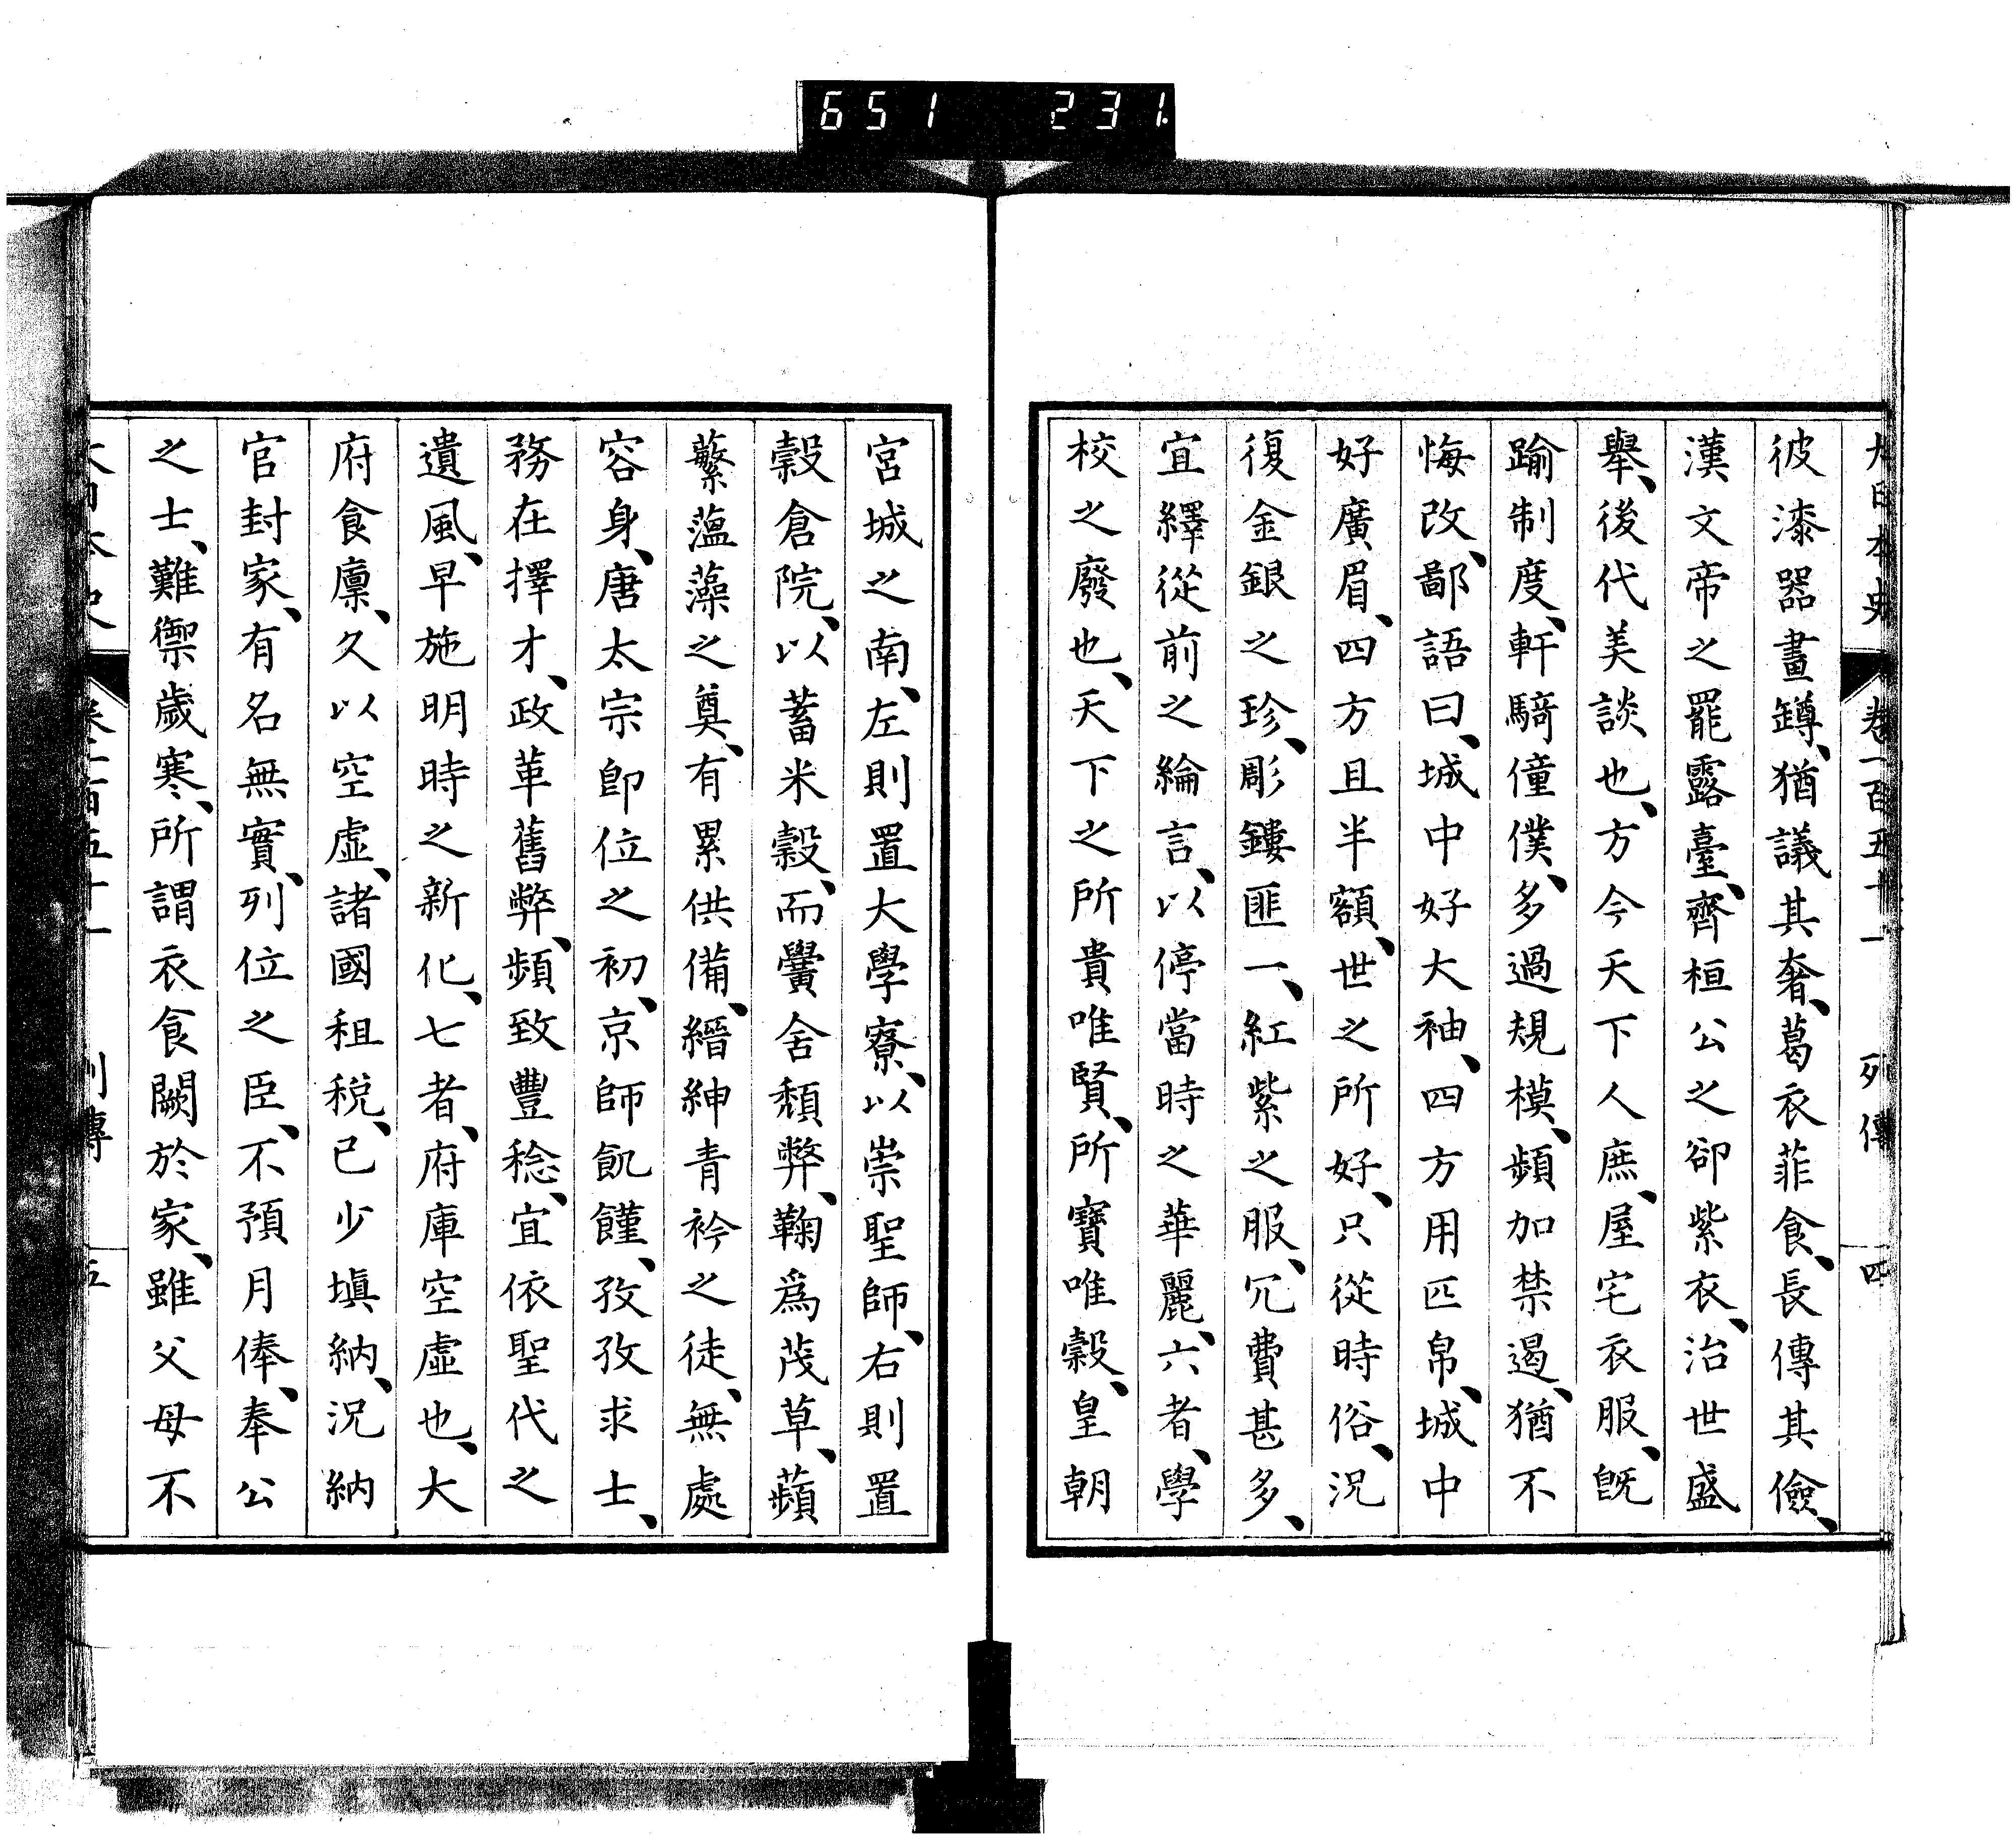 651 231.
大日本史 卷一百五十一 列傳 四
彼漆器畫罇、猶議其奢、葛衣菲食、長傳其儉、
漢文帝之罷露臺、齊桓公之卻紫衣、治世盛
擧、後代美談也、方今天下人庶、屋宅衣服、旣
踰制度、軒騎僮僕、多過規模、頻加禁遏、猶不
悔改、鄙語曰、城中好大袖、四方用匹帛、城中
好廣眉、四方且半額、世之所好、只從時俗、況
復金銀之珍、彫鏤匪一、紅紫之服、冗費甚多、
宜繹從前之綸言、以停當時之華麗、六者、學
校之廢也、天下之所貴唯賢、所寶唯穀、皇朝
宮城之南、左則置大學寮、以崇聖師、右則置
穀倉院、以蓄米穀、而黌舍頹弊、鞠爲茂草、蘋
蘩薀藻之奠、有累供備、縉紳青衿之徒、無處
容身、唐太宗卽位之初、京師飢饉、孜孜求士、
務在擇才、政革舊弊、頻致豐稔、宜依聖代之
遺風、早施明時之新化、七者、府庫空虛也、大
府食廩、久以空虛、諸國租稅、已少塡納、況納
官封家、有名無實、列位之臣、不預月俸、奉公
之士、難禦歲寒、所謂衣食闕於家、雖父母不
大日本史 卷一百五十一 列傳 五